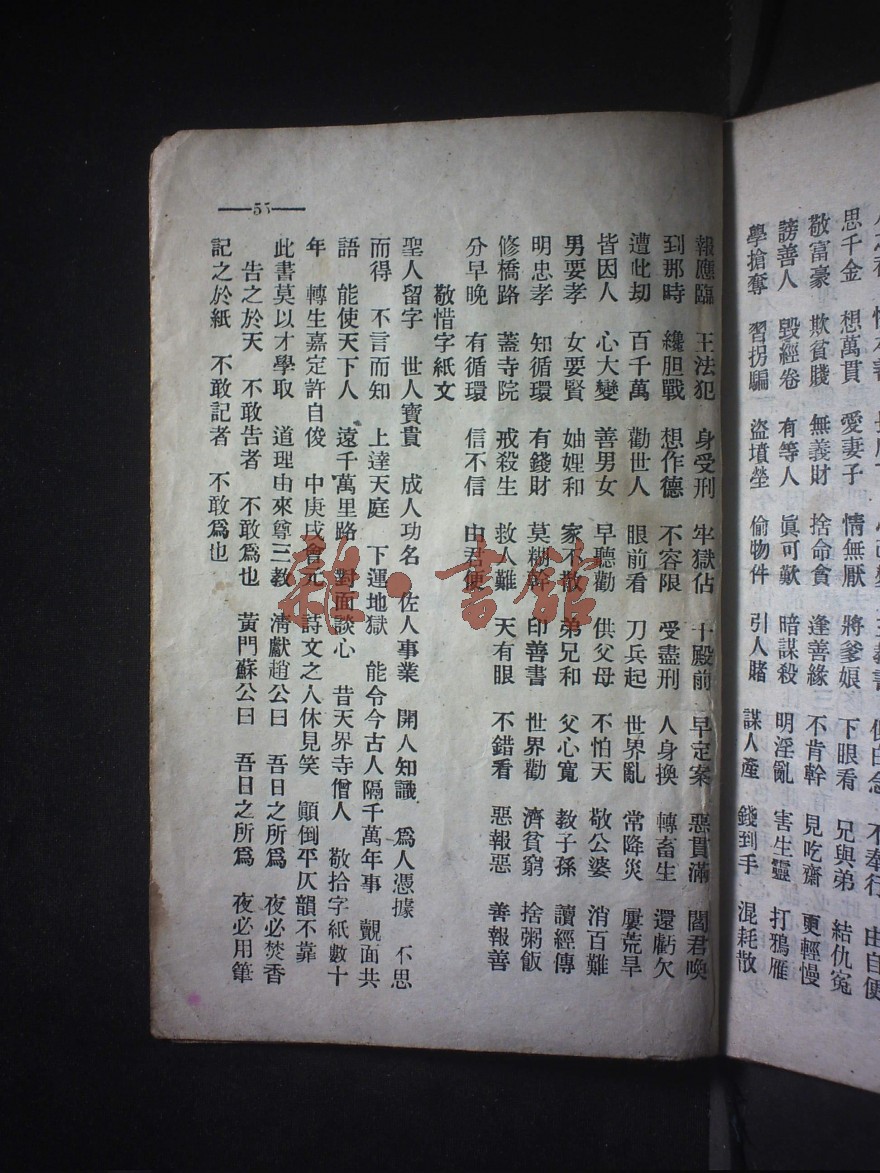 思千金　想萬貫　愛妻子　情無厭　將爹娘　下眼看　兄與弟　結仇冤
敬富豪　欺貧賤　無義財　捨命貪　逢善緣　不肯幹　見吃齋　更輕慢
謗善人　毀經卷　有等人　眞可歎　暗謀殺　明淫亂　害生靈　打鴉雁
學搶奪　習拐騙　盜墳塋　偷物件　引人賭　謀人產　錢到手　混耗散
報應臨　王法犯　身受刑　牢獄佔　十殿前　早定案　惡貫滿　閻君喚
到那時　纔胆戰　想作德　不容限　受盡刑　人身換　轉畜生　還虧欠
遭此劫　百千萬　勸世人　眼前看　刀兵起　世界亂　常降災　屢荒旱
皆因人　心大變　善男女　早聽勸　供父母　不怕天　敬公婆　消百難
男要孝　女要賢　妯娌和　家不散　弟兄和　父心寬　教子孫　讀經傳
明忠孝　知循環　有錢財　莫糊幹　印善書　世界勸　濟貧窮　捨粥飯
修橋路　蓋寺院　戒殺生　救人難　天有眼　不錯看　惡報惡　善報善
分早晚　有循環　信不信　由君便
敬惜字紙文
聖人留字　世人寶貴　成人功名　佐人事業　開人知識　爲人憑據　不思
而得　不言而知　上達天庭　下運地獄　能令今古人隔千萬年事　覿面共
語　能使天下人　遠千萬里路　對面談心　昔天界寺僧人　敬拾字紙數十
年　轉生嘉定許自俊　中庚戌會元　詩文之人休見笑　顚倒平仄韻不靠
此書莫以才學取　道理由來尊三教　淸獻趙公曰　吾日之所爲　夜必焚香
告之於天　不敢告者　不敢爲也　黃門蘇公曰　吾日之所爲　夜必用筆
記之於紙　不敢記者　不敢爲也
55
雜·書館